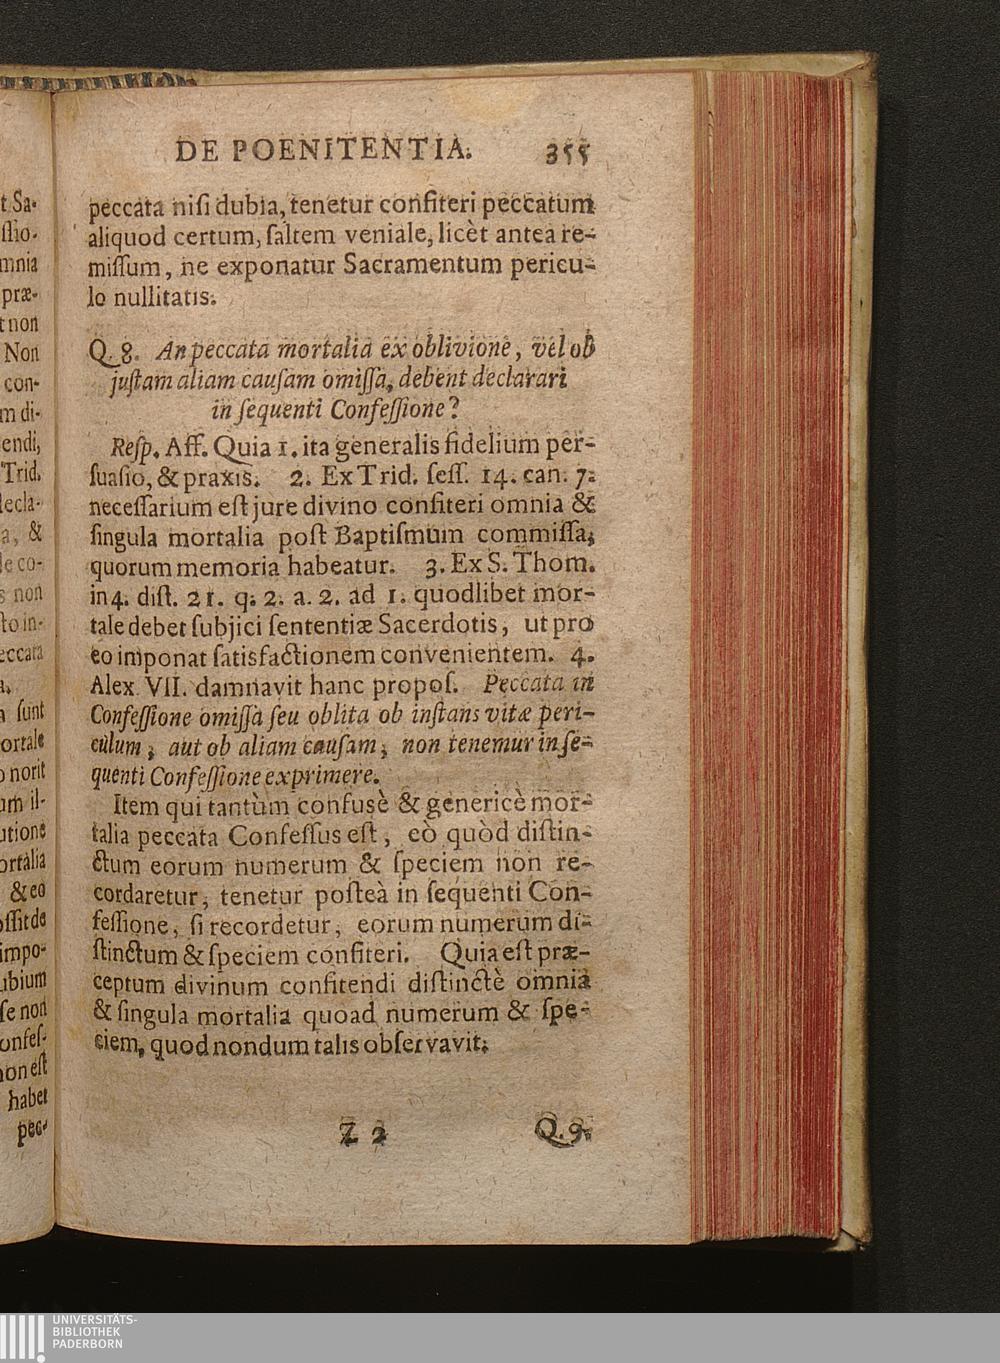 DE POENITENTIA. 355
peccata niſi dubia, tenetur confiteri peccatum
aliquod certum, ſaltem veniale, licèt antea re-
miſſum, ne exponatur Sacramentum pericu-
lo nullitatis.
Q. 8. An peccata mortalia ex oblivione, vel ob
juſtam aliam cauſam omiſſa, debent declarari
in ſequenti Confeſſione?
Reſp. Aff. Quia 1. ita generalis fidelium per-
ſuaſio, & praxis. 2. Ex Trid. ſeſſ. 14. can. 7.
neceſſarium eſt jure divino confiteri omnia &
ſingula mortalia poſt Baptiſmum commiſſa,
quorum memoria habeatur. 3. Ex S. Thom.
in 4. diſt. 21. q. 2. a. 2. ad 1. quodlibet mor-
tale debet ſubjici ſententiæ Sacerdotis, ut pro
eo imponat ſatisfactionem convenientem. 4.
Alex. VII. damnavit hanc propoſ. Peccata in
Confeſſione omiſſa ſeu oblita ob inſtans vitæ peri-
culum, aut ob aliam cauſam, non tenemur in ſe-
quenti Confeſſione exprimere.
Item qui tantùm confusè & genericè mor-
talia peccata Confeſſus eſt, eò quòd diſtin-
ctum eorum numerum & ſpeciem non re-
cordaretur, tenetur poſteà in ſequenti Con-
feſſione, ſi recordetur, eorum numerum di-
ſtinctum & ſpeciem confiteri. Quia eſt præ-
ceptum divinum confitendi diſtinctè omnia
& ſingula mortalia quoad numerum & ſpe-
ciem, quod nondum talis obſervavit.
Z 2 Q. 9.
t Sa-
ſſio-
mnia
præ-
t non
Non
con-
m di-
endi,
Trid.
lecla-
a, &
le co-
s non
to in-
eccata
a.
a ſunt
ortale
o norit
um il-
utione
ortalia
& eo
oſſit de
impo-
ubium
ſe non
onfeſ-
non eſt
habet
pec-
UNIVERSITÄTS-
BIBLIOTHEK
PADERBORN